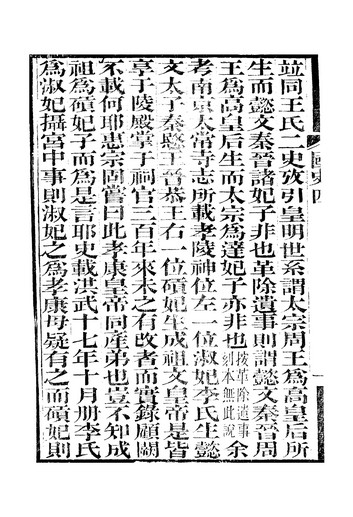 並同王氏二史攷引皇明世系謂太宗周王爲高皇后所
生而懿文秦晉諸妃子非也革除遺事則謂懿文秦晉周
王爲高皇后生而太宗爲達妃子亦非也按革除遺事刻本無此說余
考南京太常寺志所載孝陵神位左一位淑妃李氏生懿
文太子秦愍王晉恭王右一位碽妃生成祖文皇帝是皆
享于陵殿掌于祠官三百年來未之有改者而實錄顧闕
不載何耶惠宗固嘗曰此孝康皇帝同產弟也豈不知成
祖爲碽妃子而爲是言耶史載洪武十七年十月册李氏
爲淑妃攝宮中事則淑妃之爲孝康母疑有之而碽妃則
國史四